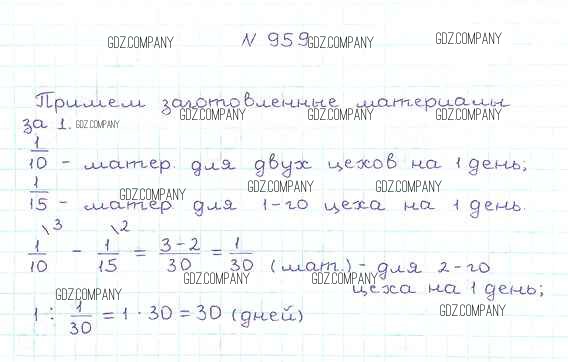 GDZ.COMPANY № 959 GDZ.COMPANY GDZ.COMPANY
Примем заготовленные материалы
GDZ.COMPANY GDZ.COMPANY GDZ.COMPANY
за 1. GDZ.COMPANY
1/10 - матер. для двух цехов на 1 день;
GDZ.COMPANY GDZ.COMPANY GDZ.COMPANY
1/15 - матер для 1-го цеха на 1 день.
\3 \2
1/10 - 1/15 = 3-2/30 = 1/30 (мат.) - для 2-го
GDZ.COMPANY GDZ.COMPANY
цеха на 1 день;
GDZ.COMPANY GDZ.COMPANY
1 : 1/30 = 1 · 30 = 30 (дней)